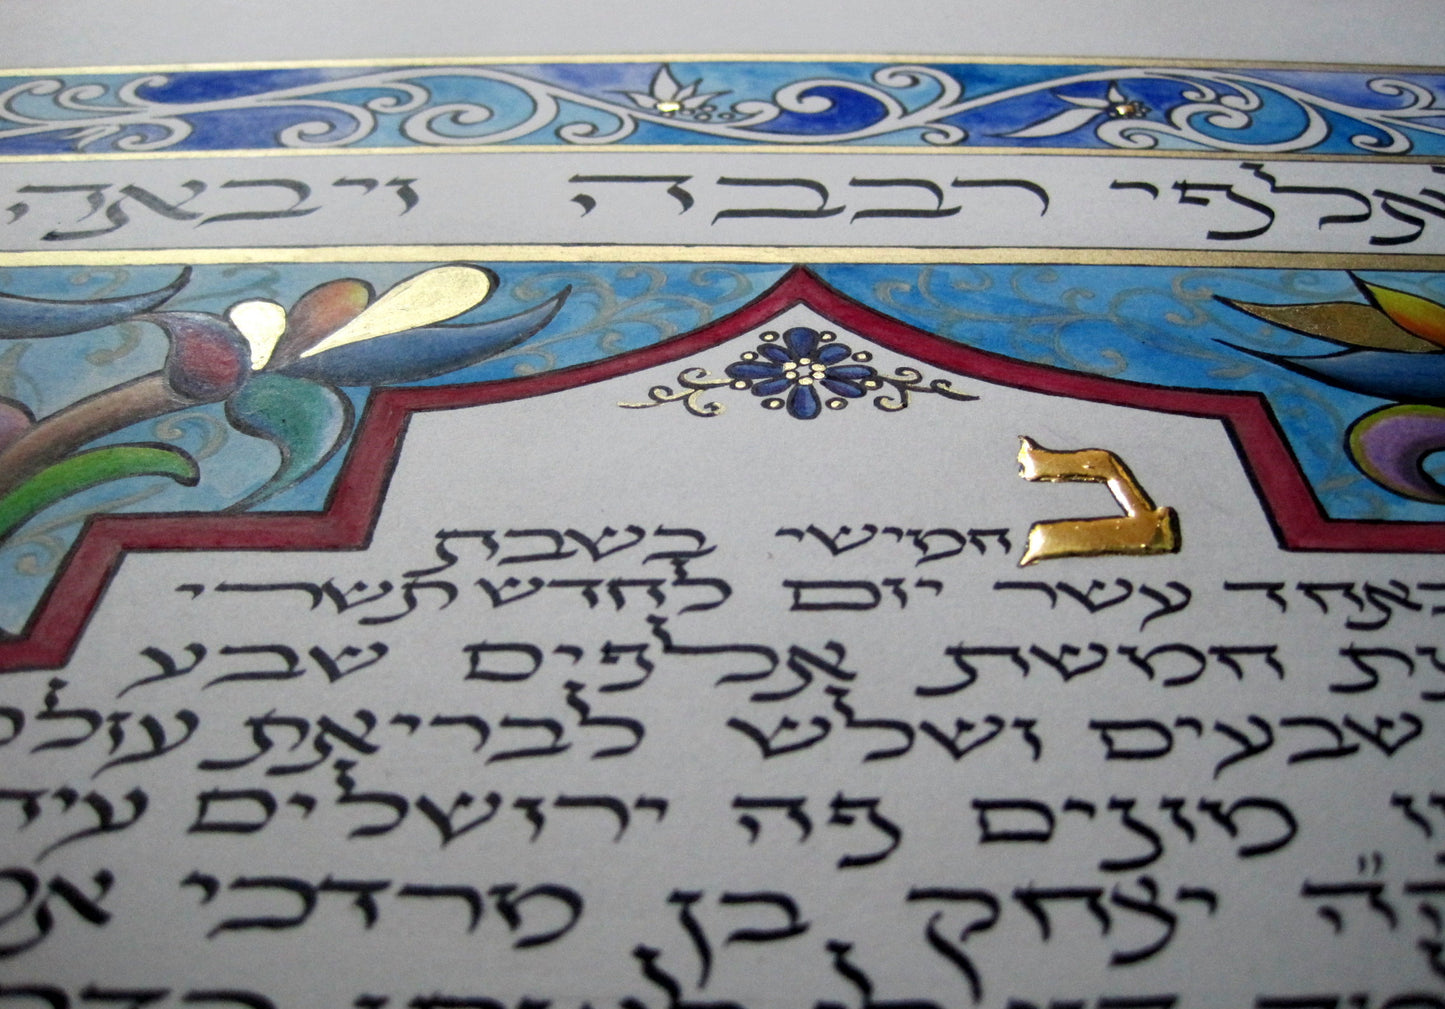 אלפי רבבה ויבאה
בחמישי בשבת
באחד עשר יום לחדש תשרי
חמשת אלפים שבע
שבעים ושלש לבריאת
מונים פה ירושלים
יצחק בן מרדכי